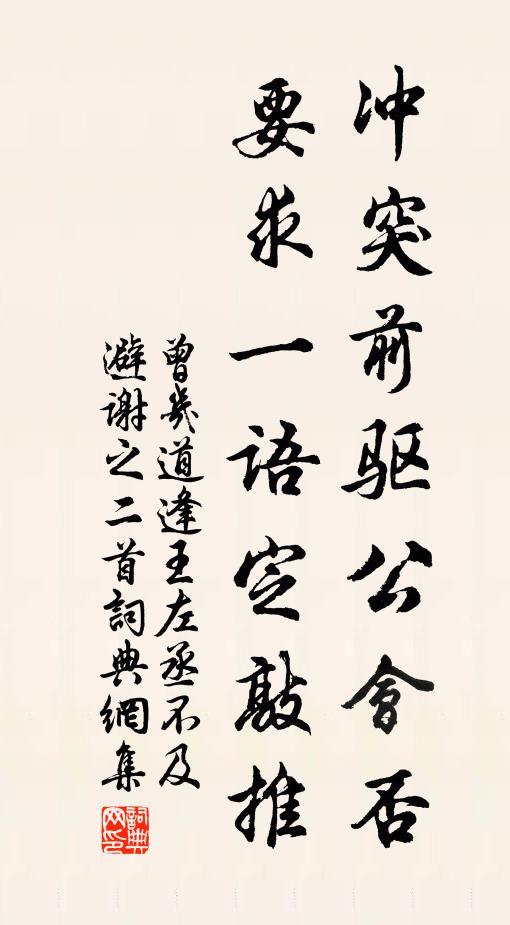 冲突前驱公会否
要求一语定敲推
曾几道逢王左丞不及
避谢之二首词典网集
词典网印